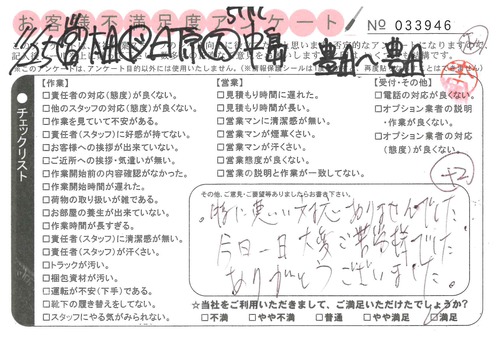 お客様不満足度アンケート
No 033946
【作業】
□責任者の対応(態度)が良くない。
□他のスタッフの対応(態度)が良くない。
□作業を見ていて不安がある。
□責任者(スタッフ)に好感が持てない。
□お客様への挨拶が出来ていない。
□ご近所への挨拶・気遣いが無い。
□作業開始前の内容確認がなかった。
□作業開始時間が遅れた。
□荷物の取り扱いが雑である。
□お部屋の養生が出来ていない。
□作業時間が長すぎる。
□責任者(スタッフ)に清潔感が無い。
□責任者(スタッフ)が汗くさい。
□トラックが汚い。
□梱包資材が汚い。
□運転が不安(下手)である。
□靴下の履き替えをしてない。
□スタッフにやる気がみられない。
【営業】
□見積もり時間に遅れた。
□見積もり時間が長い。
□営業マンに清潔感が無い。
□営業マンが煙草くさい。
□営業マンが汗くさい。
□営業態度が良くない。
□営業の説明と作業が一致してない。
【受付・その他】
□電話の対応が良くない。
□オプション業者の説明
・作業が良くない。
□オプション業者の対応
(態度)が良くない。
チェックリスト
その他、ご意見・ご要望等ありましたらお書き下さい。
特に悪い対応ございませんでした。
今日一日大変ご苦労様でした
ありがとうございました。
☆当社をご利用いただきまして、ご満足いただけたでしょうか?
□不満 □やや不満 □普通 □やや満足 □満足